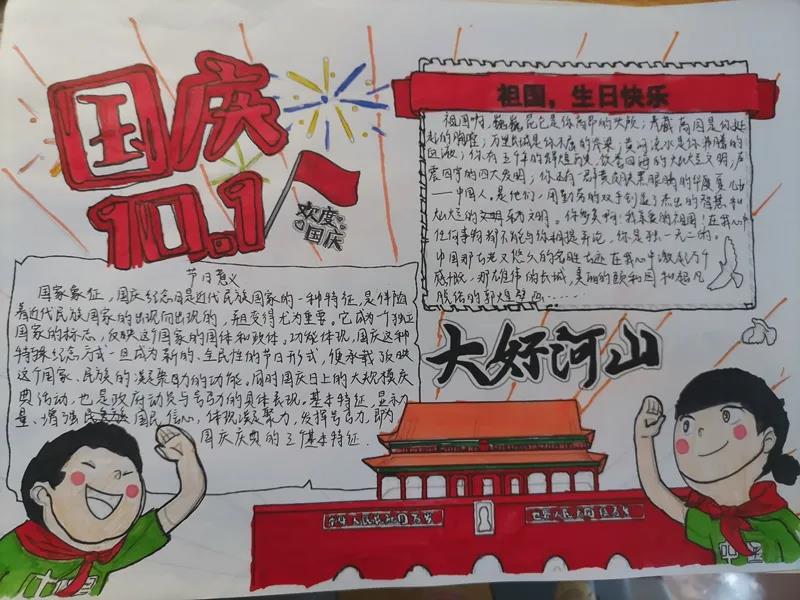 国庆
10.1
欢度
国庆
祖国，生日快乐
祖国啊，巍巍昆仑是你高昂的头颅；青藏高原是你挺
起的胸膛；万里长城是你不屈的脊梁；黄河流水是你沸腾的
血液；你有三千年的辉煌历史，饮誉四海的灿烂文明，声
震四宇的四大发明；你还有一群黄皮肤黑眼睛的华夏儿女
——中国人。是他们，用勤劳的双手创造了杰出的智慧和
灿烂的文明。你听见啊！我亲爱的祖国！在我心中
任何事物都不能与你相提并论，你是独一无二的。
中国那古老又悠久的名胜古迹在我心中激起万千
感慨，那雄伟的长城，美丽的颐和园和
的敦煌壁画……
节日意义
国家象征，国庆纪念日是近代民族国家的一种特征，是伴随
着近代民族国家的出现而出现的，并且变得尤为重要。它成为一个独立
国家的标志，反映这个国家的国体和政体。功能体现，国庆这种
特殊纪念方式一旦成为新的、全民性的节日形式，便承载了反映
这个国家、民族的凝聚力的功能。同时国庆日上的大规模庆
典活动，也是政府动员与号召力的具体表现。基本特征，显示力
量、增强国民信心，体现凝聚力，发挥号召力，即为
国庆庆典的三个基本特征．
大好河山
中华人民共和国万岁
世界人民大团结万岁
中国
中国